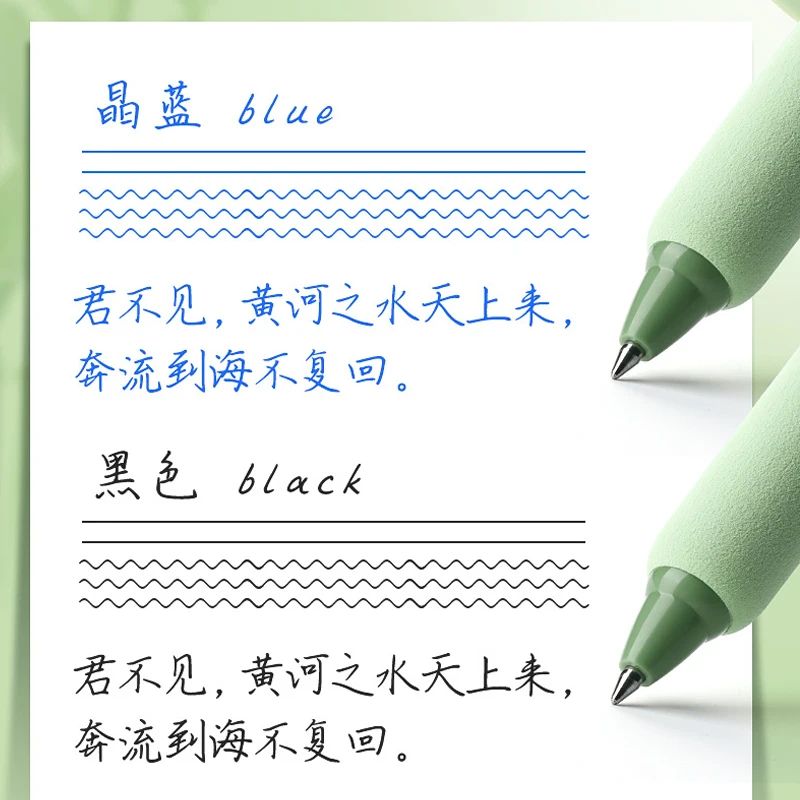 晶蓝 blue
君不见,黄河之水天上来,
奔流到海不复回。
黑色 black
君不见,黄河之水天上来,
奔流到海不复回。